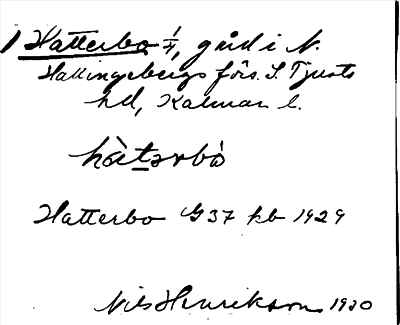 Hatterbo 1/4, gård i N.
Hallingebergs förs. S. Tjusts
hd, Kalmar l.
hàtərbó
Hatterbo G 37 kb 1929
Nils Henrikson 1930